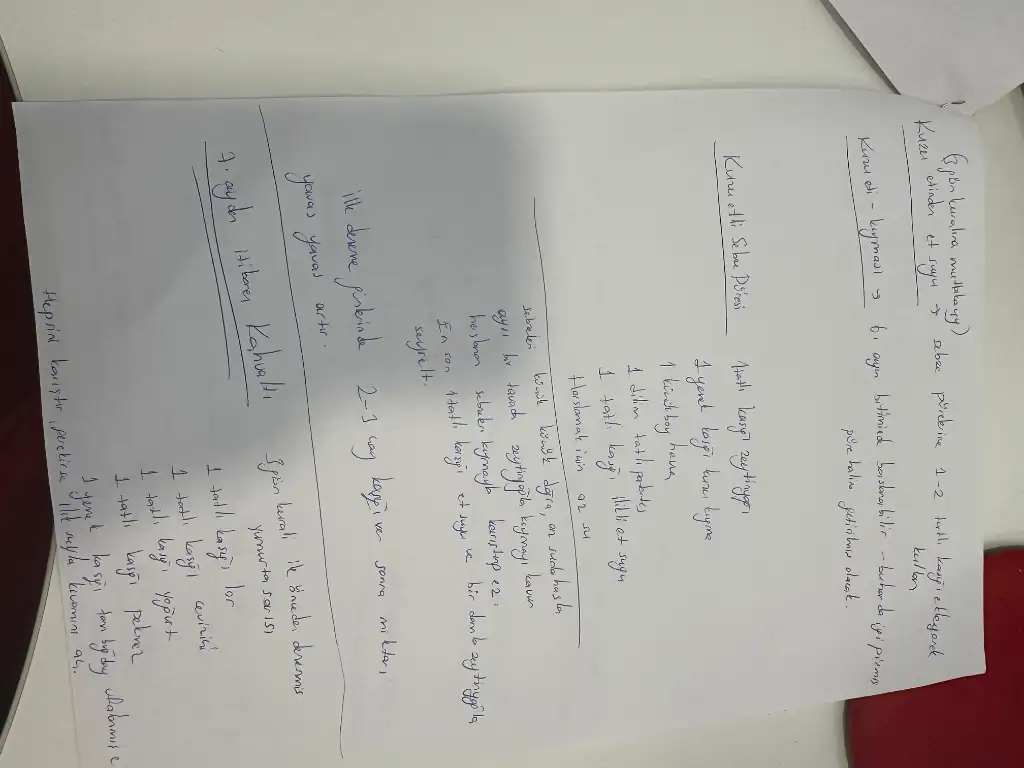 (3 gün kuralına muhakkayy)
Kuzu etinden et suyu → sebze pürelerine 1-2 tatlı kaşığı ekleyerek
kullan
Kuzu eti - kıyması → 6. ayın bitmied başlanabilir - buharda iyi pişmiş
püre haline getirilmiş olacak.
Kuzu etli Sebze Püresi
1 tatlı kaşığı zeytinyağı
1 yemek kaşığı kuzu kıyma
1 küçük boy havuç
1 dilim tatlı patates
1 tatlı kaşığı ilikli et suyu
Haşlamak için az su
sebzeleri küçük küçük doğra, az suda haşla
ayrı bir tavada zeytinyağıyla kıymayı kavur
haşlanan sebzeleri kıymayla karıştırıp ez.
En son 1 tatlı kaşığı et suyu ve bir damla zeytinyağıyla
seyrelt.
ilk deneme günlerinde 2-3 çay kaşığı ver sonra miktarı
yavaş yavaş artır.
7. aydan itibaren Kahvaltı
3 gün kuralı ile önceden denenmiş
yumurta sarısı
1 tatlı kaşığı lor
1 tatlı kaşığı ceviziçi
1 tatlı kaşığı yoğurt
1 tatlı kaşığı pekmez
1 yemek kaşığı tam buğday
Hepsini karıştır, gerekirse ılık suyla kıvamını aç.